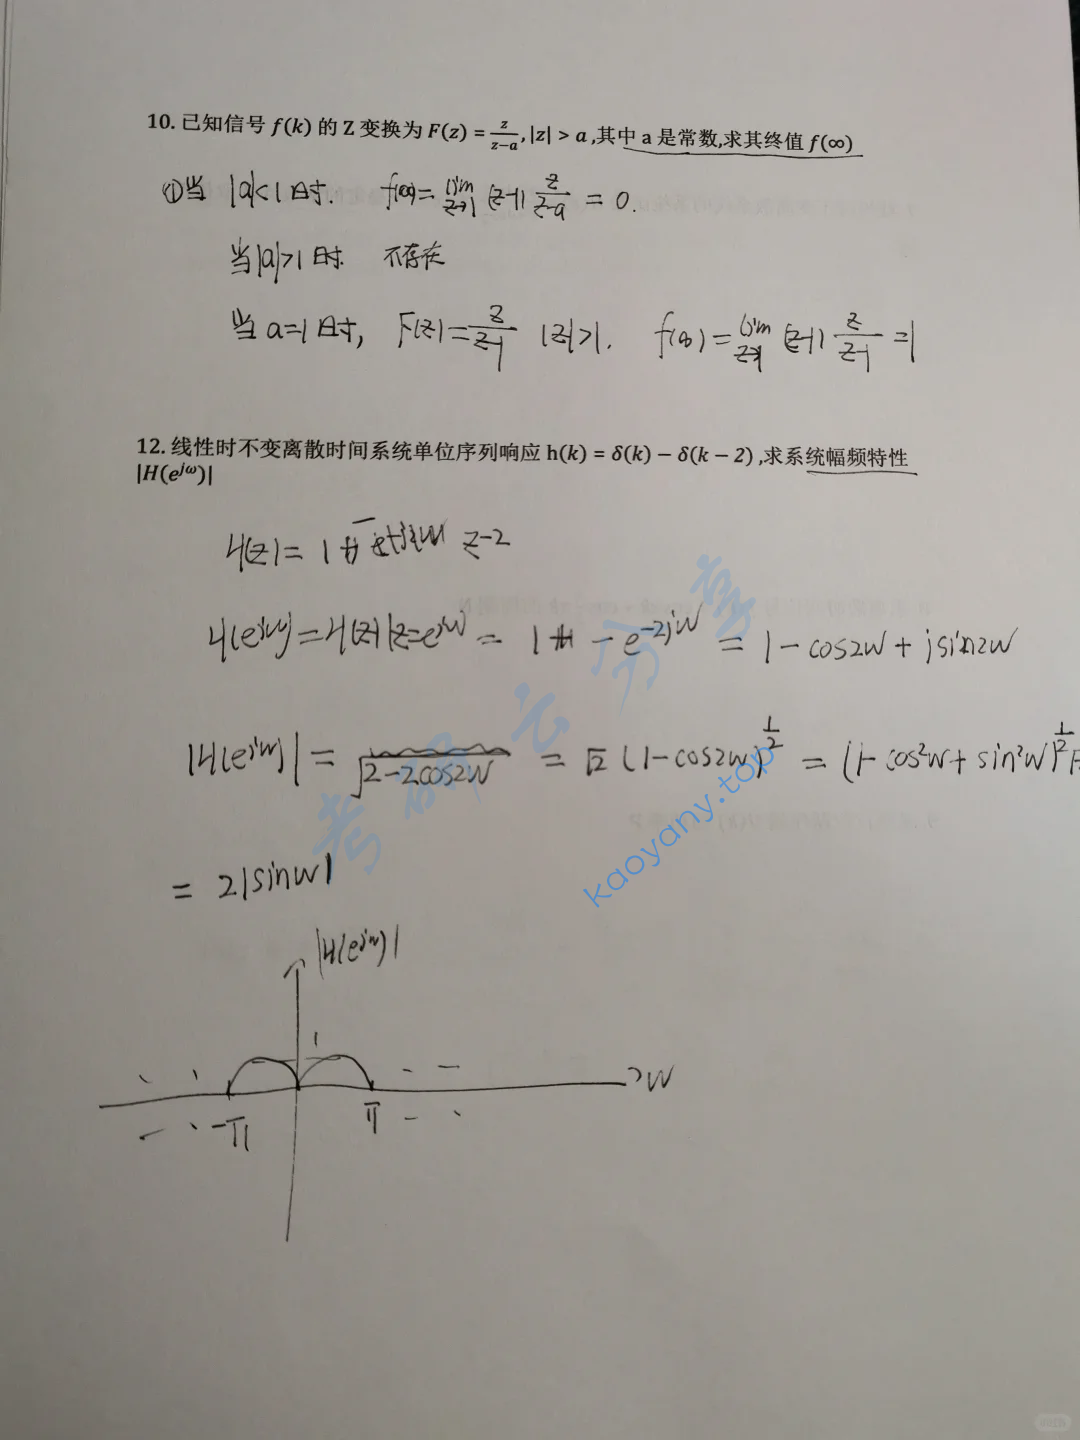 10. 已知信号 f(k) 的 Z 变换为 F(z) = z/(z−a), |z| > a ,其中 a 是常数,求其终值 f(∞)
①当 |a|<1时. f(∞)= lim z→1 (z-1) z/(z-a) = 0.
当|a|>1时. 不存在
当 a=1时, F(z)= z/(z-1) |z|>1. f(∞)= lim z→1 (z-1) z/(z-1) =1
12. 线性时不变离散时间系统单位序列响应 h(k) = δ(k) − δ(k − 2) ,求系统幅频特性
|H(e^jω)|
H(z)= 1 - z^-2
H(e^jw)=H(z)|z=e^jw = 1 - e^-2jw = 1-cos2w + jsin2w
|H(e^jw)| = √(2-2cos2w) = √2 (1-cos2w)^1/2 = (1-cos²w+sin²w)^1/2 √
= 2|sinw|
|H(e^jw)|
1
w
-π
π
考研云分享
kaoyany.top